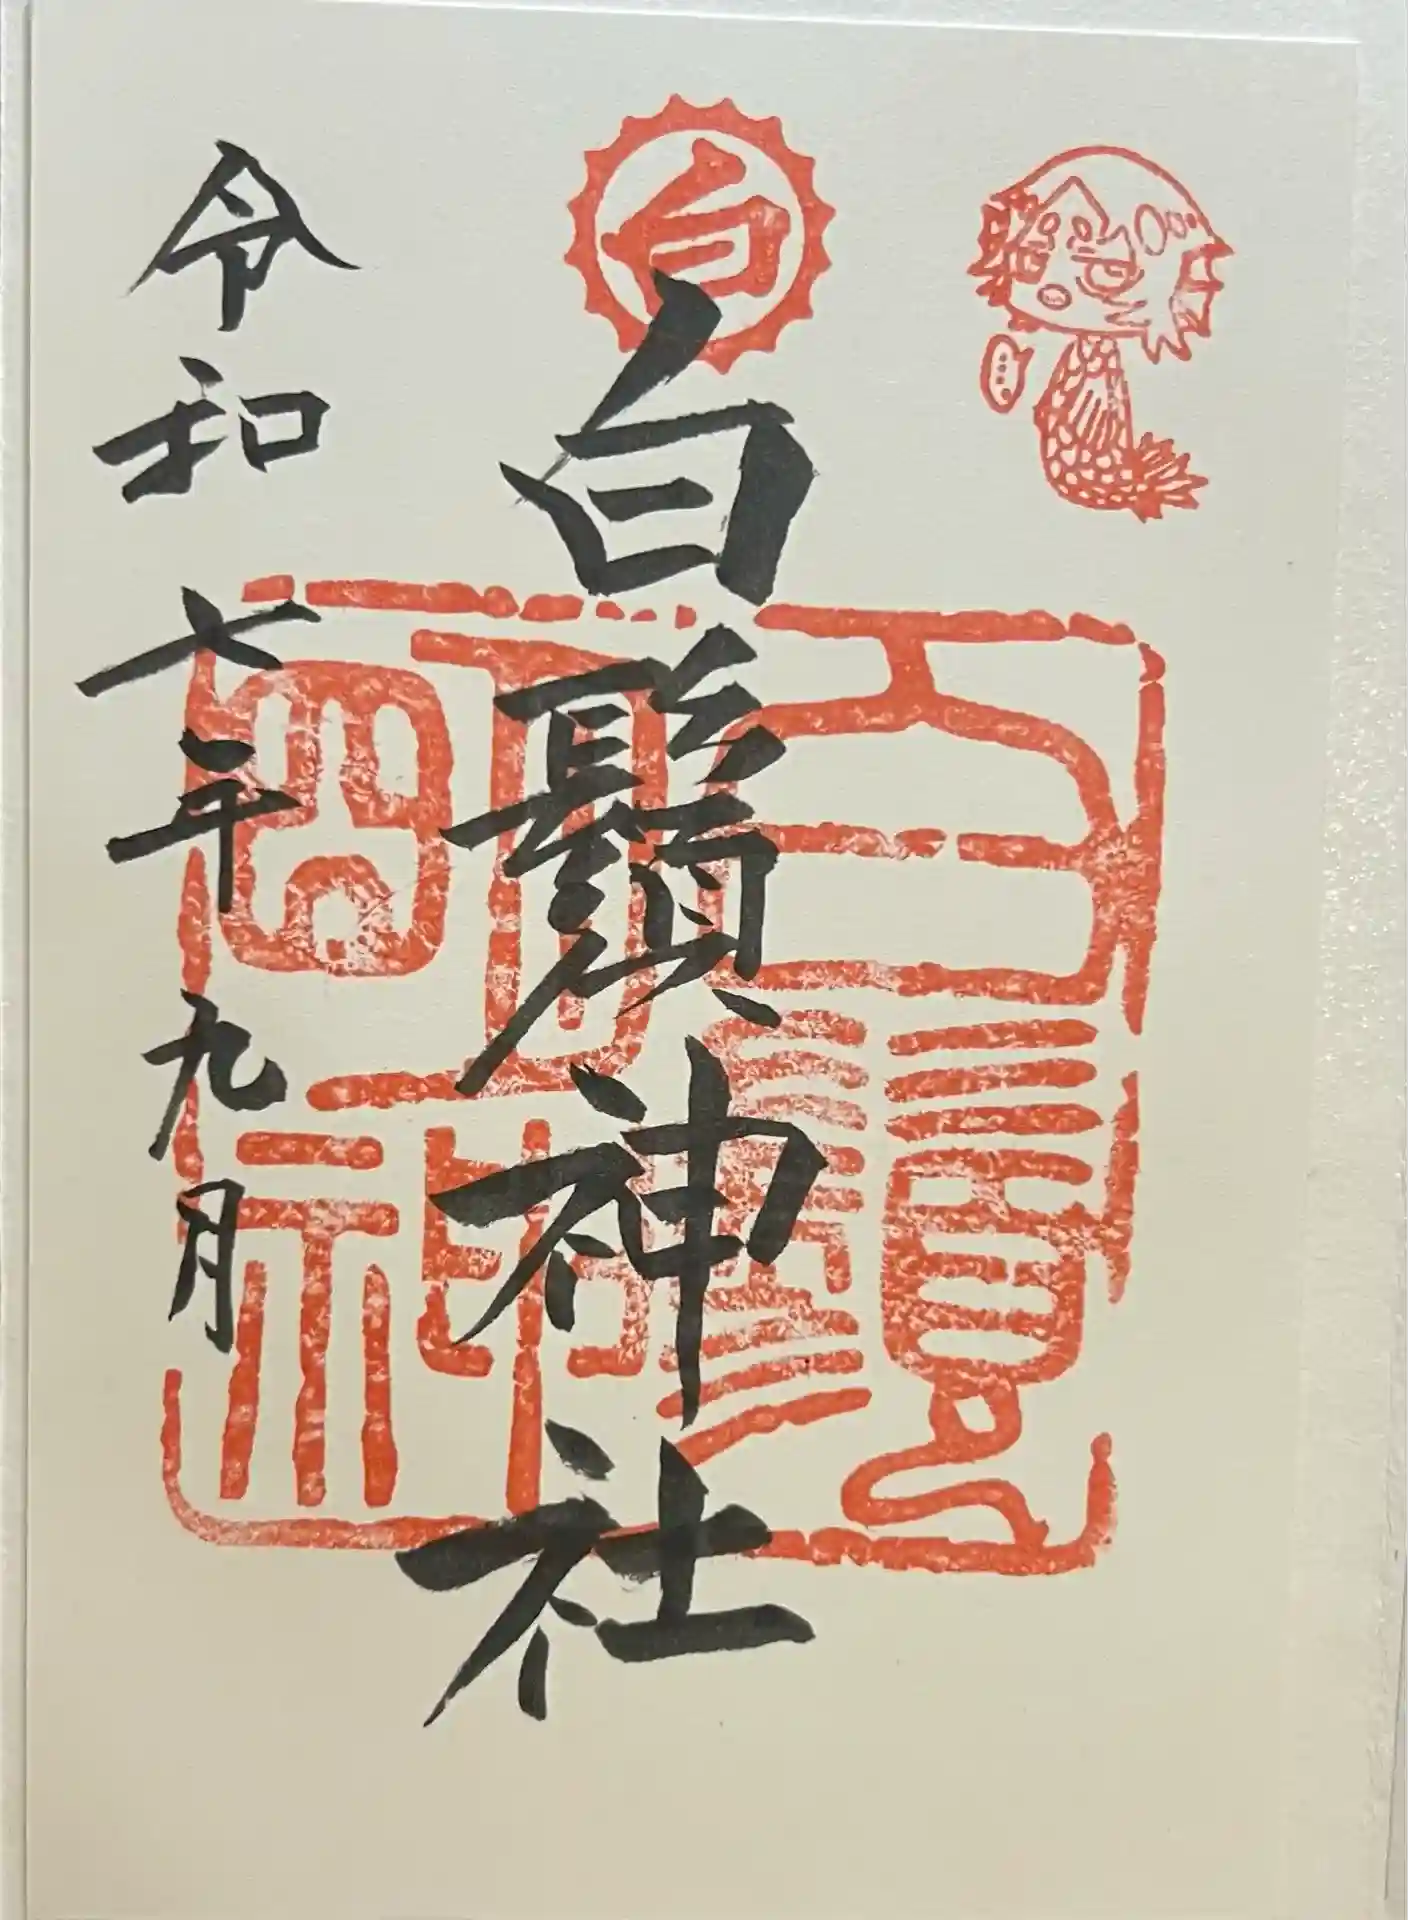 白
白鬚神社
白鬚神社
令和七年九月